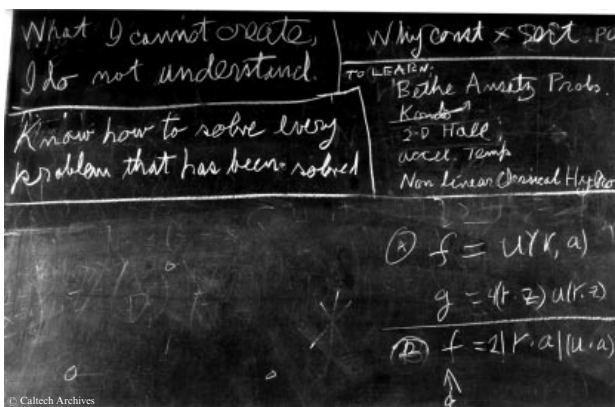 What I cannot create,
I do not understand.
Know how to solve every
problem that has been solved
Why const × sort. PO
TO LEARN:
Bethe Ansatz Probs.
Kondo
2-D Hall
accel. Temp
Non linear Classical Hydro
f = u(r, a)
g = 4(r·z) u(r·z)
f = 2|r·a|(u·a)
© Caltech Archives